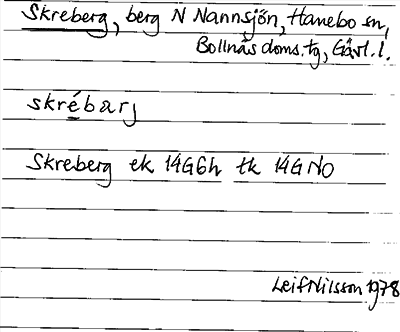 Skreberg, berg N Nannsjön, Hanebo sn,
Bollnäs doms.tg, Gävl.l.
skrébarj
Skreberg ek 14G6h tk 14G NO
Leif Nilsson 1978